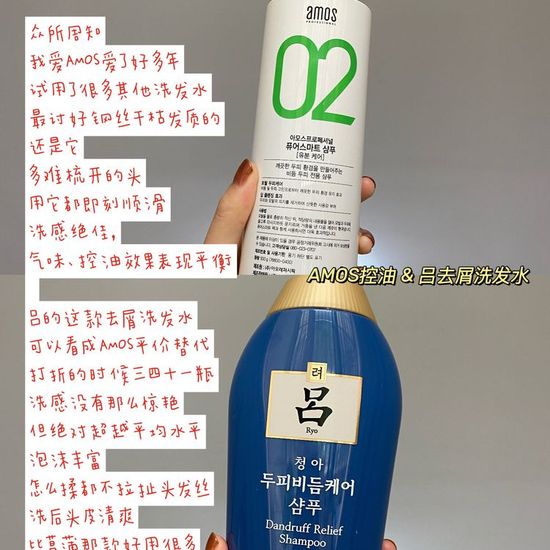 众所周知
我爱AMOS爱了好多年
试用了很多其他洗发水
最讨好钢丝干枯发质的
还是它
多难梳开的头
用它都即刻顺滑
洗感绝佳,
气味、控油效果表现平衡
amos
PROFESSIONAL
02
아모스프로페셔널
퓨어스마트 샴푸
[유분 케어]
깨끗한 두피 환경을 만들어주는
비듬 두피 전용 샴푸
AMOS控油 & 吕去屑洗发水
吕的这款去屑洗发水
可以看成AMOS平价替代
打折的时候三四十一瓶
洗感没有那么惊艳
但绝对超越平均水平
泡沫丰富
怎么揉都不拉扯头发丝
洗后头皮清爽
比菖蒲那款好用很多
려
呂
Ryo
청아
두피비듬케어
샴푸
Dandruff Relief
Shampoo